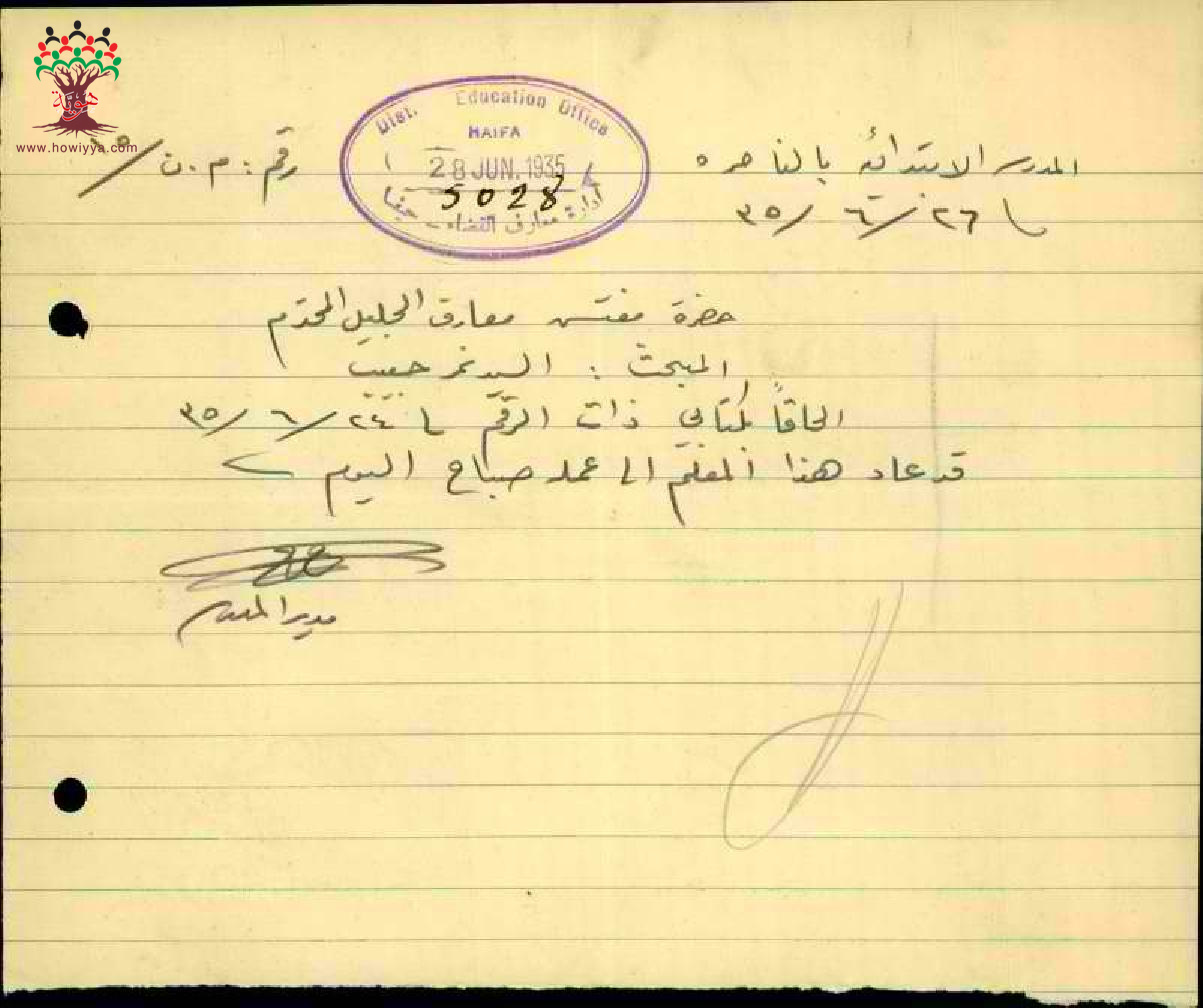 هوية
www.howiyya.com
Dist. Education Office
HAIFA
28 JUN. 1935
5028
إدارة معارف القضاء - حيفا
المدرسة الابتدائية بالناصره
رقم : م . ن / ١٥
٢٦ / ٦ / ٣٥
حضرة مفتش معارف الجليل المحترم
المبحث : السيد نمر حبيب
الحاقاً بكتابي ذات الرقم تا ٢٤ / ٦ / ٣٥
قد عاد هذا المعلم الى عمله صباح اليوم
مدير المدرسة